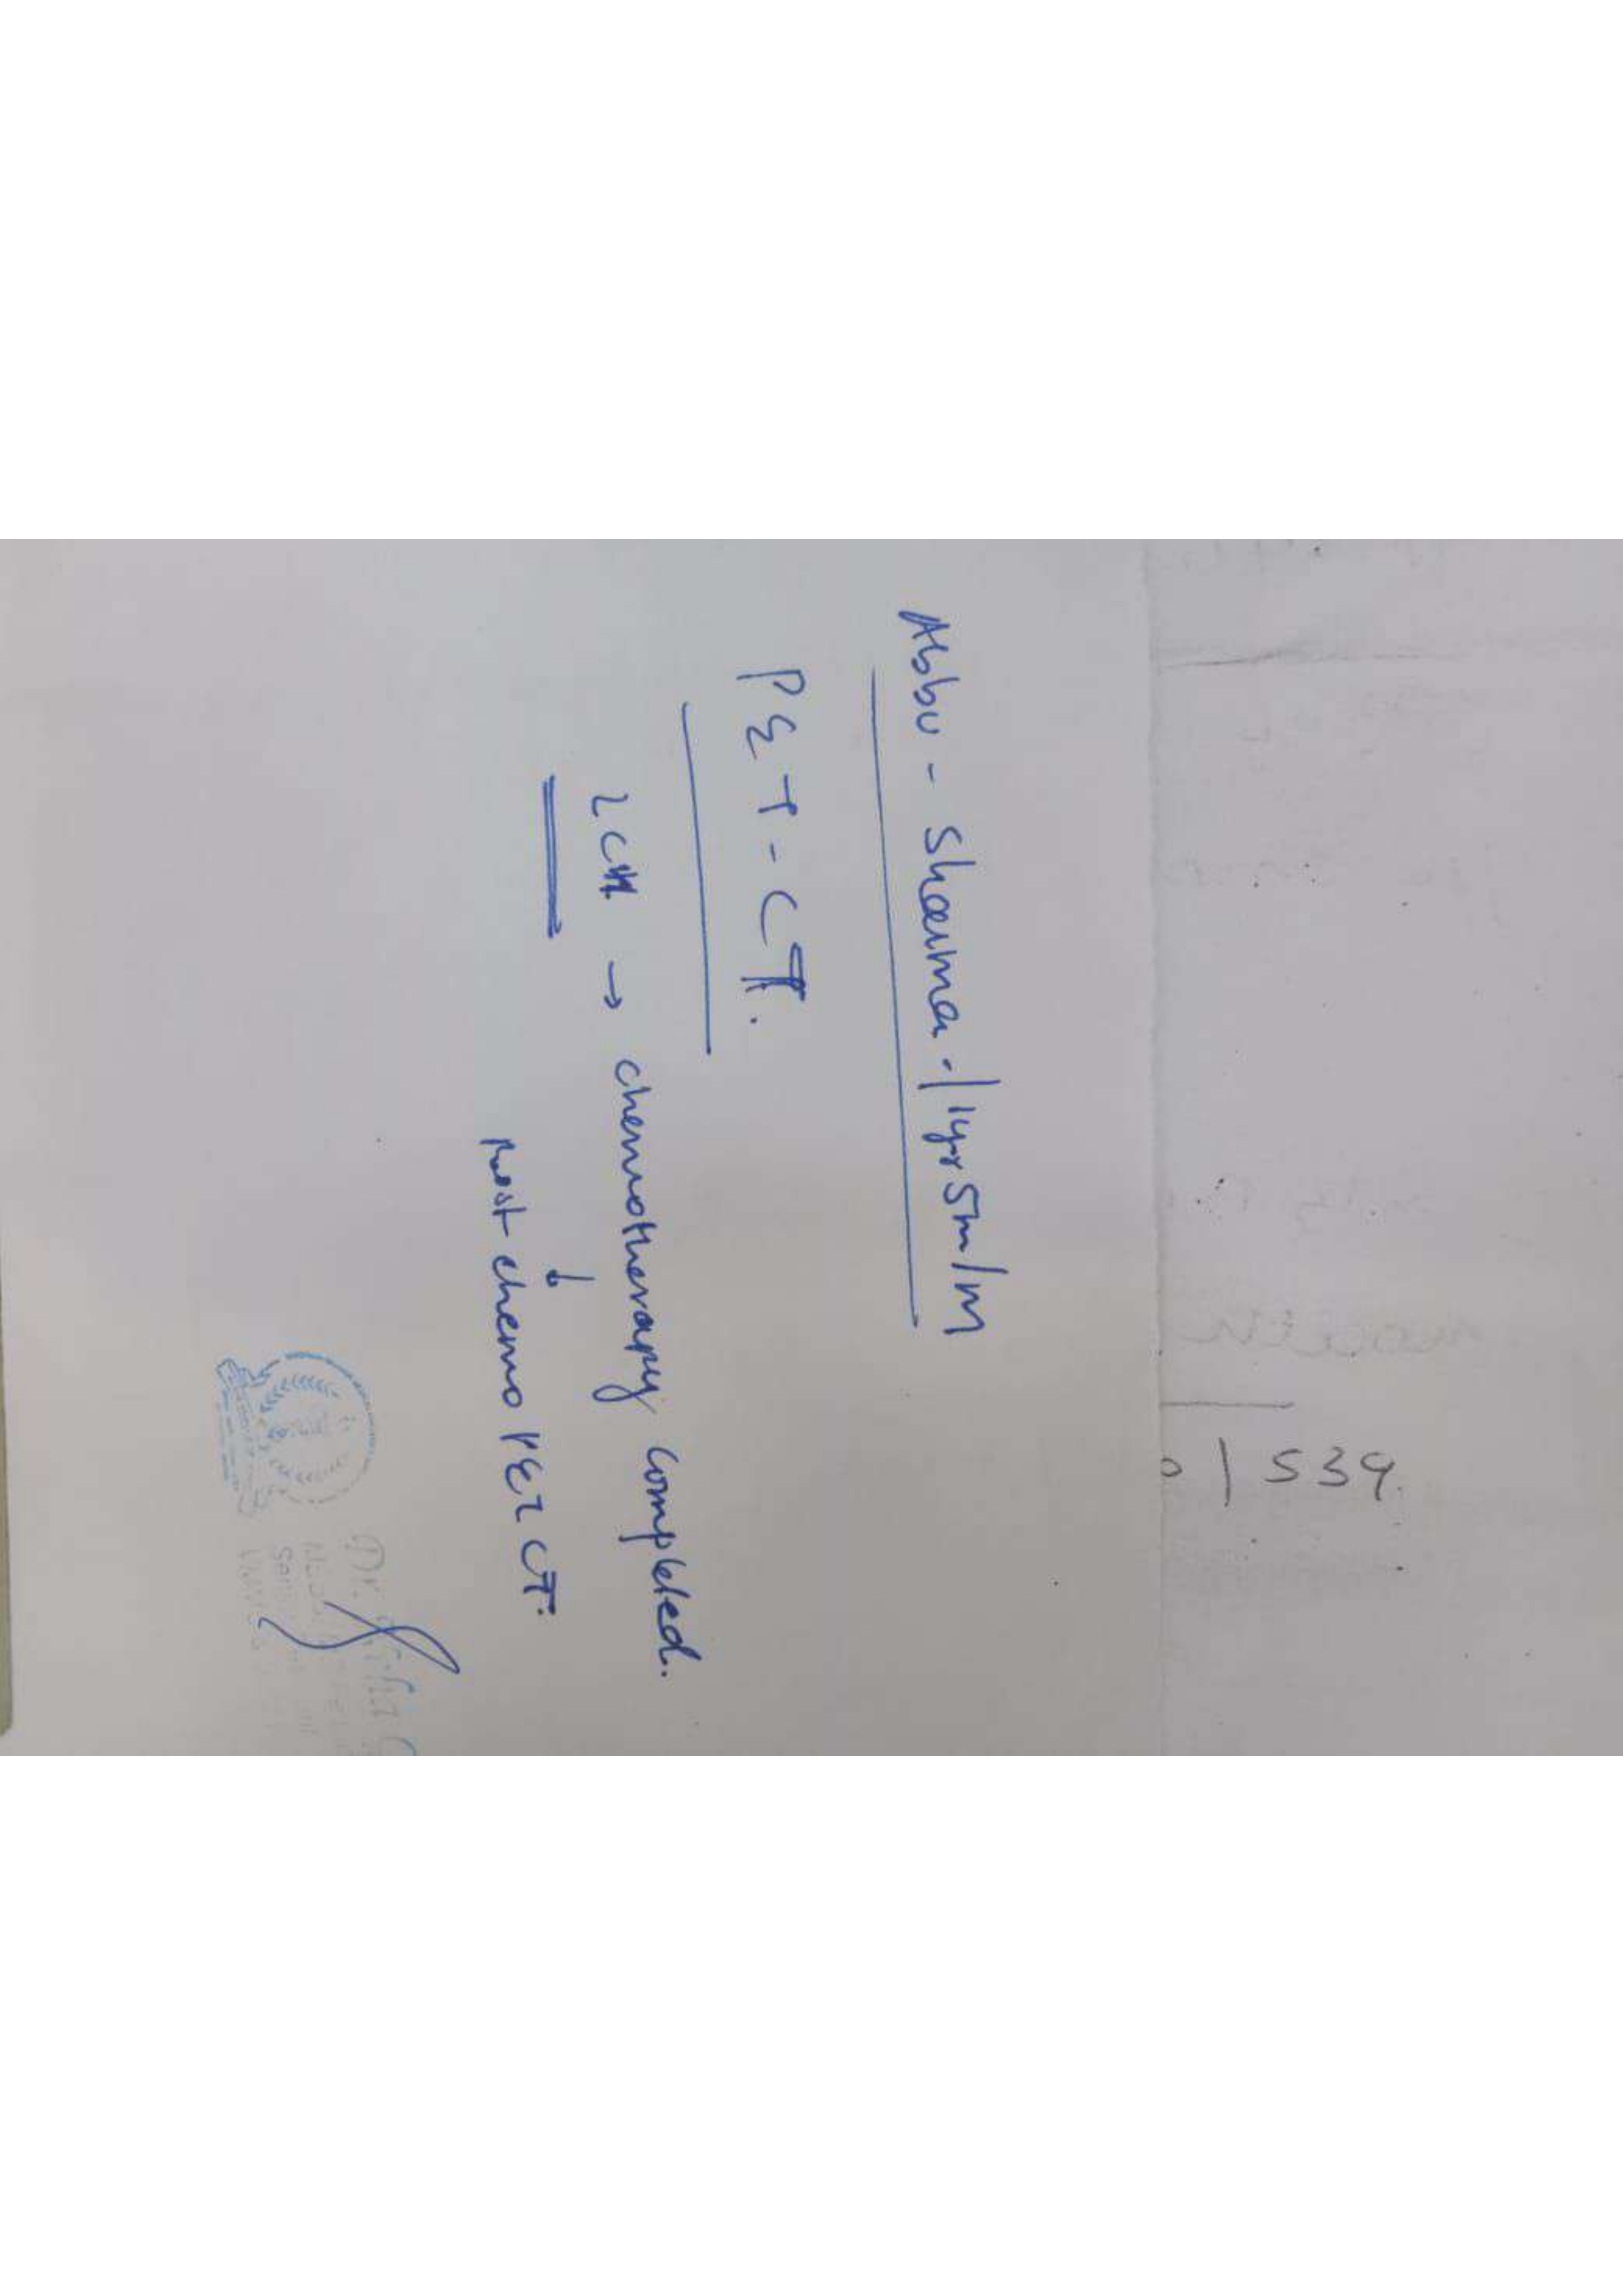 0 | 539.
Abbu - Sharma - / 1yr 5m / M
PET - CT.
LCH → chemotherapy completed.
↓
Post chemo PET CT.
Dr.